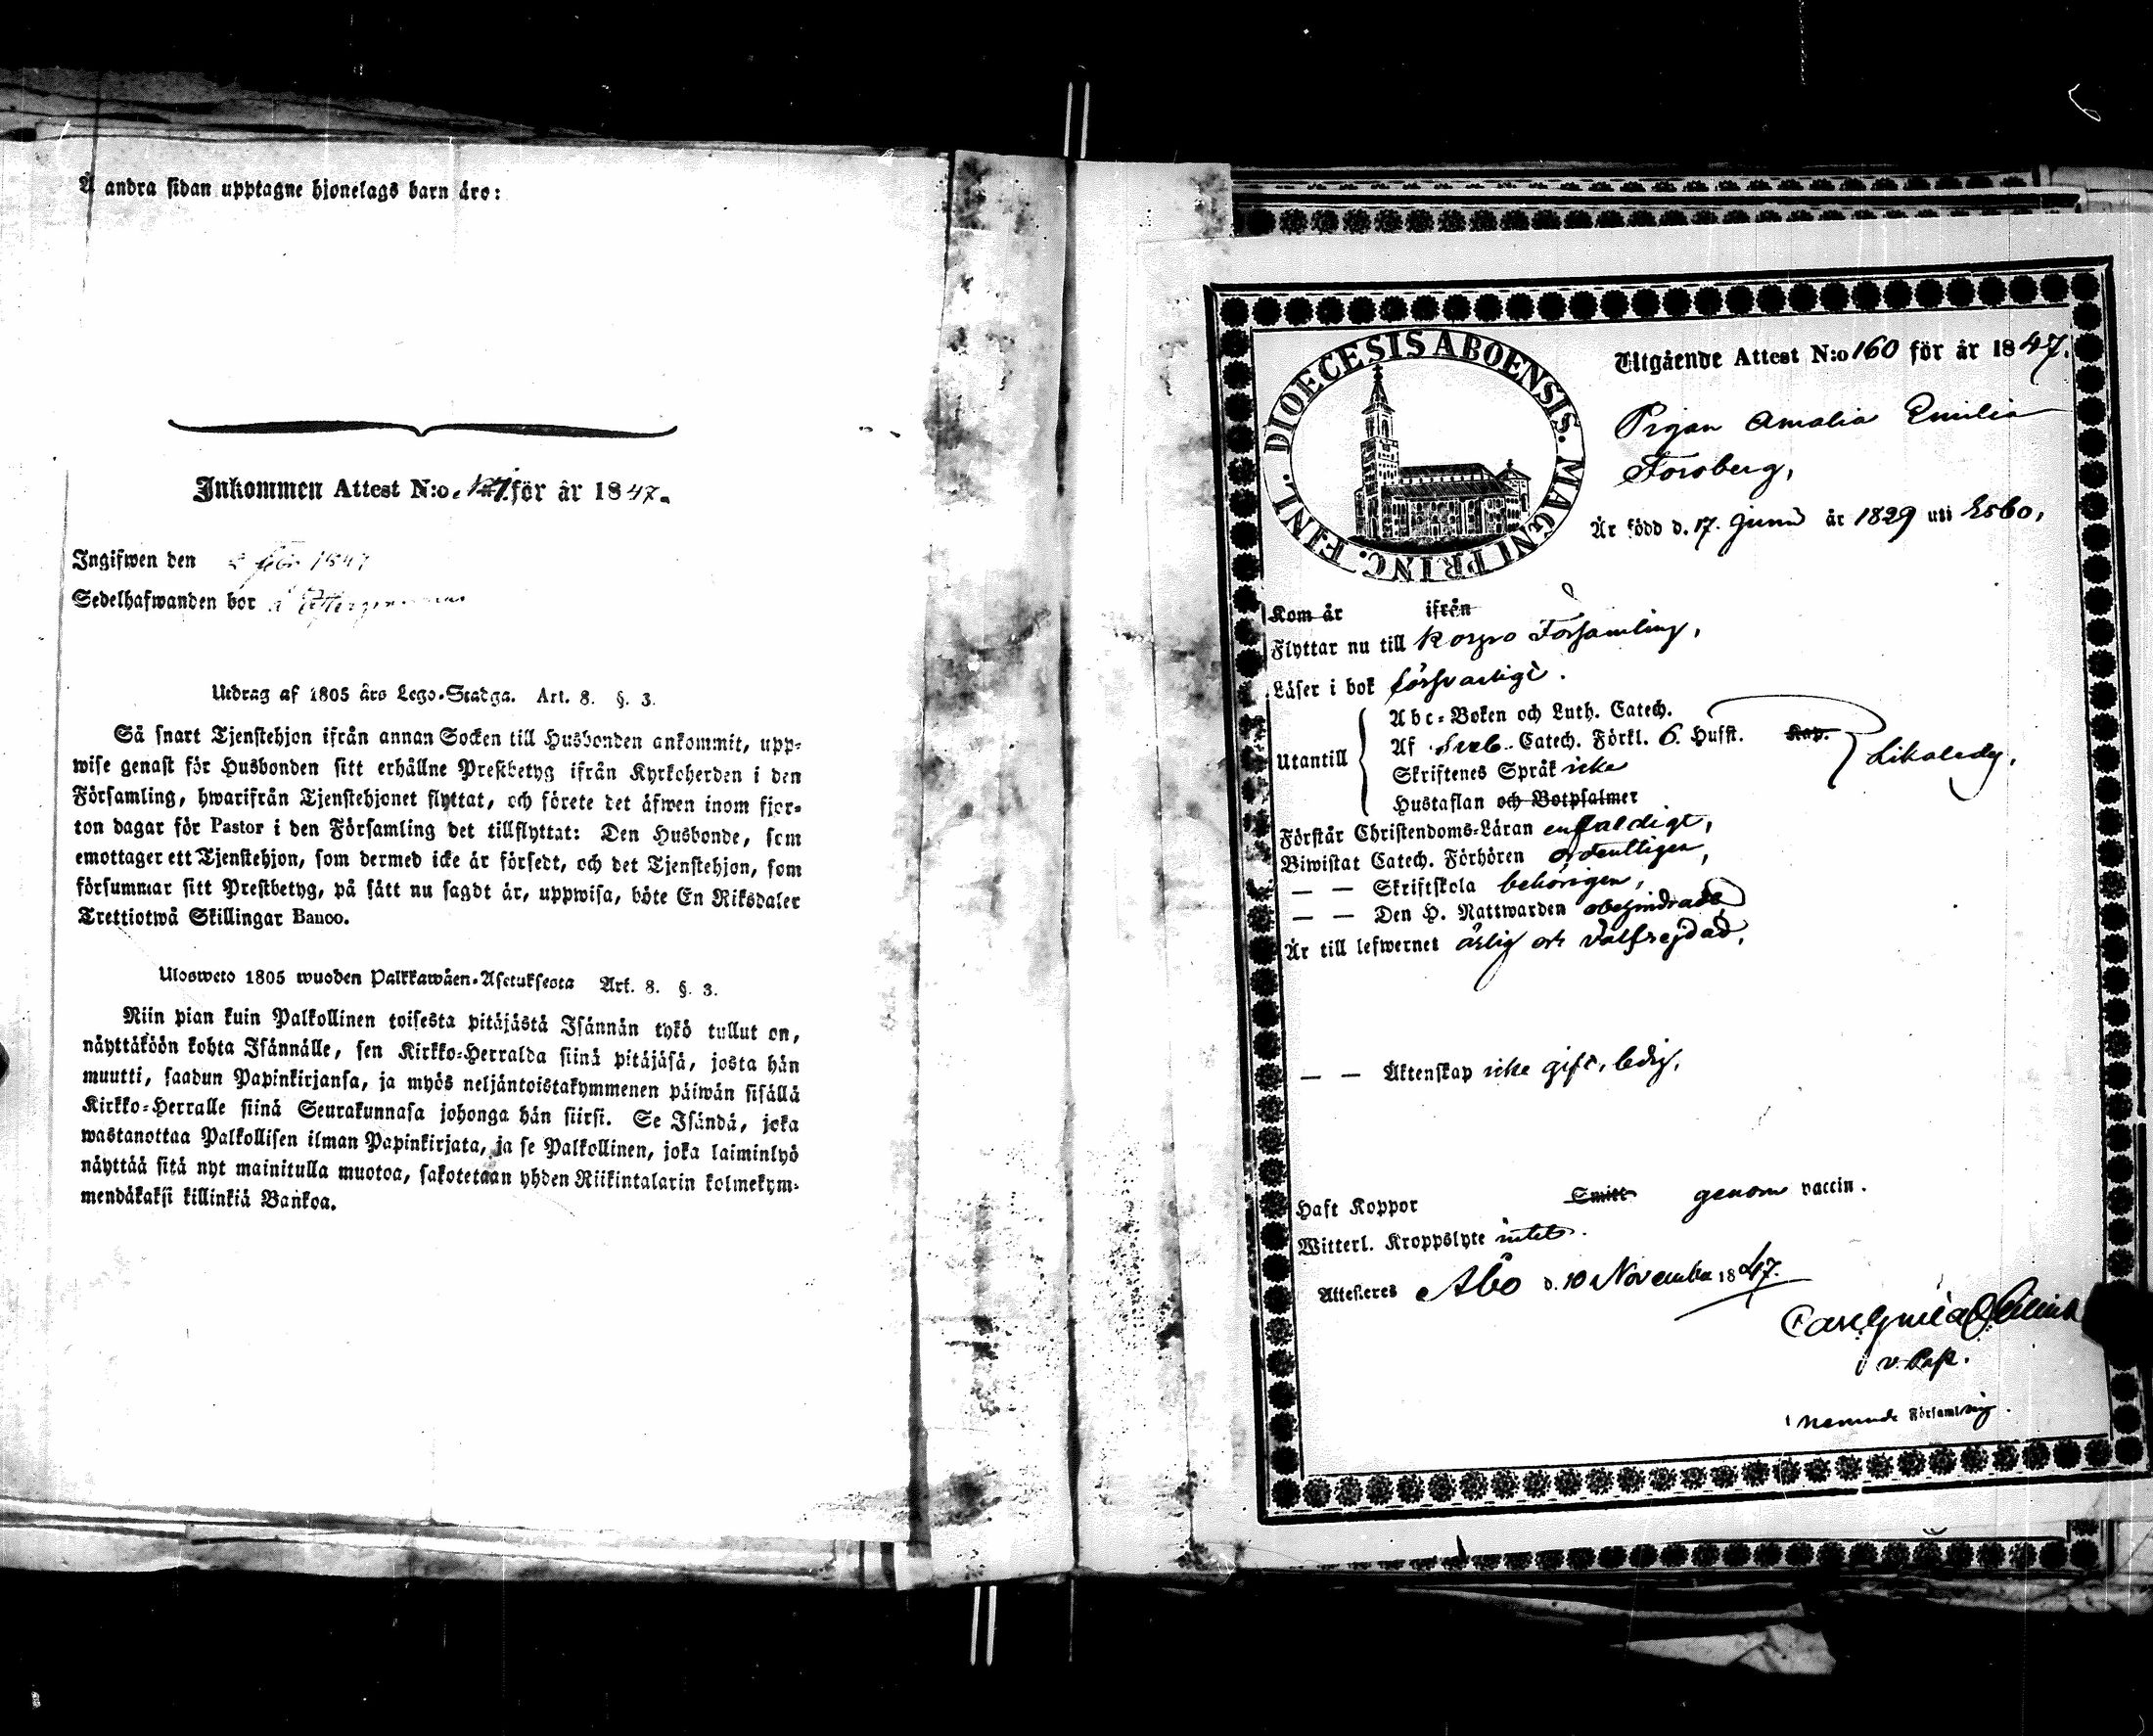 Å andra sidan upptagne hjonelags barn äro:
Inkommen Attest N:o för år 1847.
Ingifwen den 1847
Sedelhafwanden bor å
Utdrag af 1805 års Lego-Stadga. Art. 8. §. 3.
Så snart Tjenstehjon ifrån annan Socken till Husbonden ankommit, upp-
wise genast för Husbonden sitt erhållne Prestbetyg ifrån Kyrkoherden i den
Församling, hwarifrån Tjenstehjonet flyttat, och förete det äfwen inom fjor-
ton dagar för Pastor i den Församling det tillflyttat: Den Husbonde, som
emottager ett Tjenstehjon, som dermed icke är försedt, och det Tjenstehjon, som
försummar sitt Prestbetyg, på sätt nu sagdt är, uppwisa, böte En Riksdaler
Trettiotwå Skillingar Banco.
Ulosweto 1805 wuoden Palkkawäen-Asetuksesta Art. 8. §. 3.
Niin pian kuin Palkollinen toisesta pitäjästä Isännän tykö tullut on,
näyttäköön kohta Isännälle, sen Kirkko-Herralda siinä pitäjäsä, josta hän
muutti, saadun Papinkirjansa, ja myös neljäntoistakymmenen päiwän sisällä
Kirkko-Herralle siinä Seurakunnasa johonga hän siirsi. Se Isändä, joka
wastanottaa Palkollisen ilman Papinkirjata, ja se Palkollinen, joka laiminlyö
näyttää sitä nyt mainitulla muotoa, sakotetaan yhden Riikintalarin kolmekym-
mendäkaksi killinkiä Bankoa.
DIOECESIS ABOENSIS. MAGNI PRINC. FINL.
Utgående Attest N:o 160 för år 1847.
Pigan Amalia Emilia
Forsberg,
Är född d. 17. Junii år 1829 uti Esbo,
Kom år ifrån
Flyttar nu till Korpo Församling,
Läser i bok försvarligt.
Utantill
Abc-Boken och Luth. Catech.
Af Sveb. Catech. Förkl. 6. Hufst. Kap.
Skriftenes Språk icke
Hustaflan och Botpsalmer
Likaledes,
Förstår Christendoms-Läran enfaldigt,
Biwistat Catech. Förhören ordentligen,
— — Skriftskola behörigen,
— — Den H. Nattwarden obehindrad
Är till lefwernet ärlig och välfrejdad,
— — Äktenskap icke gift, ledig,
Haft Koppor Smitt genom vaccin.
Witterl. Kroppslyte intet.
Attesteres Åbo d. 10 November 1847.
v. Past.
i nemnde Församling.